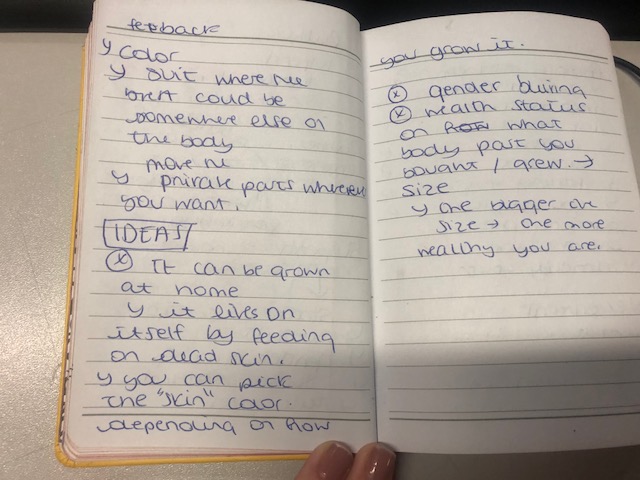 feedback
y color
y suit where the
breast could be
somewhere else on
the body
move the
y private parts wherever
you want.
IDEAS
It can be grown
at home
y it lives on
itself by feeding
on dead skin.
y you can pick
the "skin" color.
depending on how
you grow it.
gender buiing
wealth status
on what
body part you
bought / grew. →
size
y the bigger the
size → the more
wealthy you are.